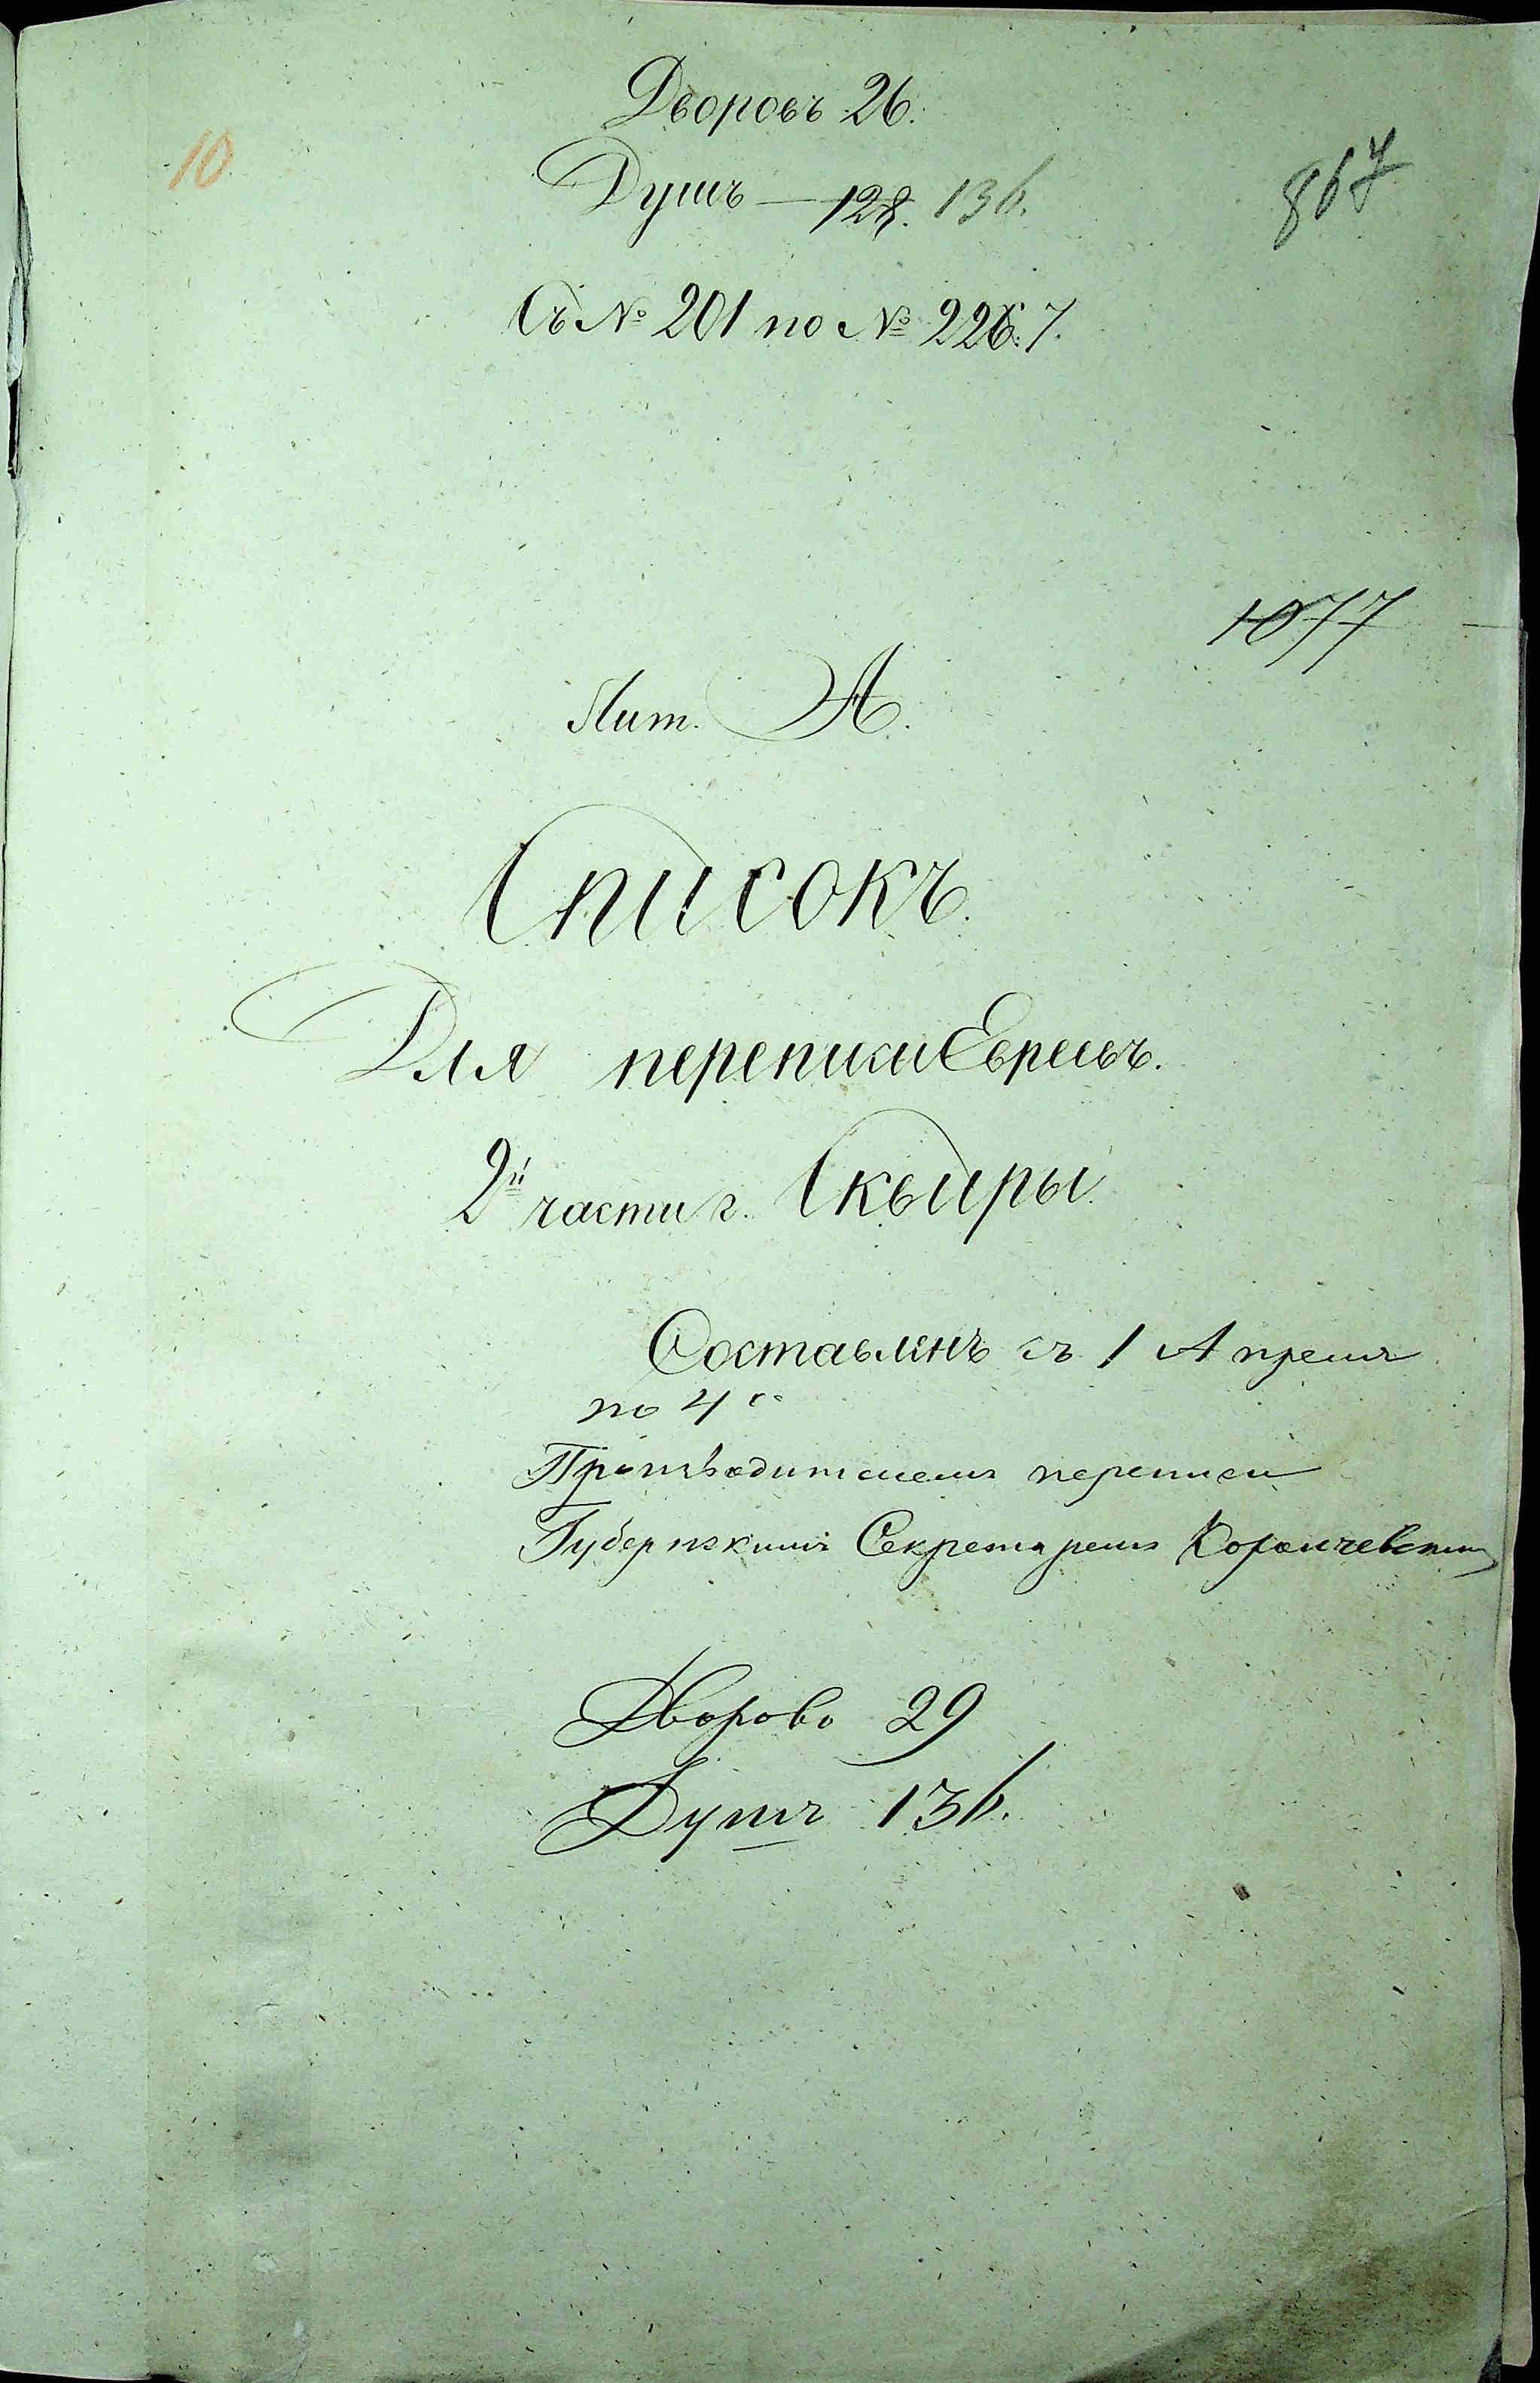 Дворовъ 26.
10
Душъ — 128. 136.
867
Съ № 201 по № 226. 7.
1077
Лит. А.
Списокъ.
Для переписи Евреевъ.
2й части г. Сквиры.
Составленъ съ 1 Апреля
по 4 ое
Производителемъ переписи
Губернскимъ Секретаремъ
Дворовъ 29
Душъ 136.